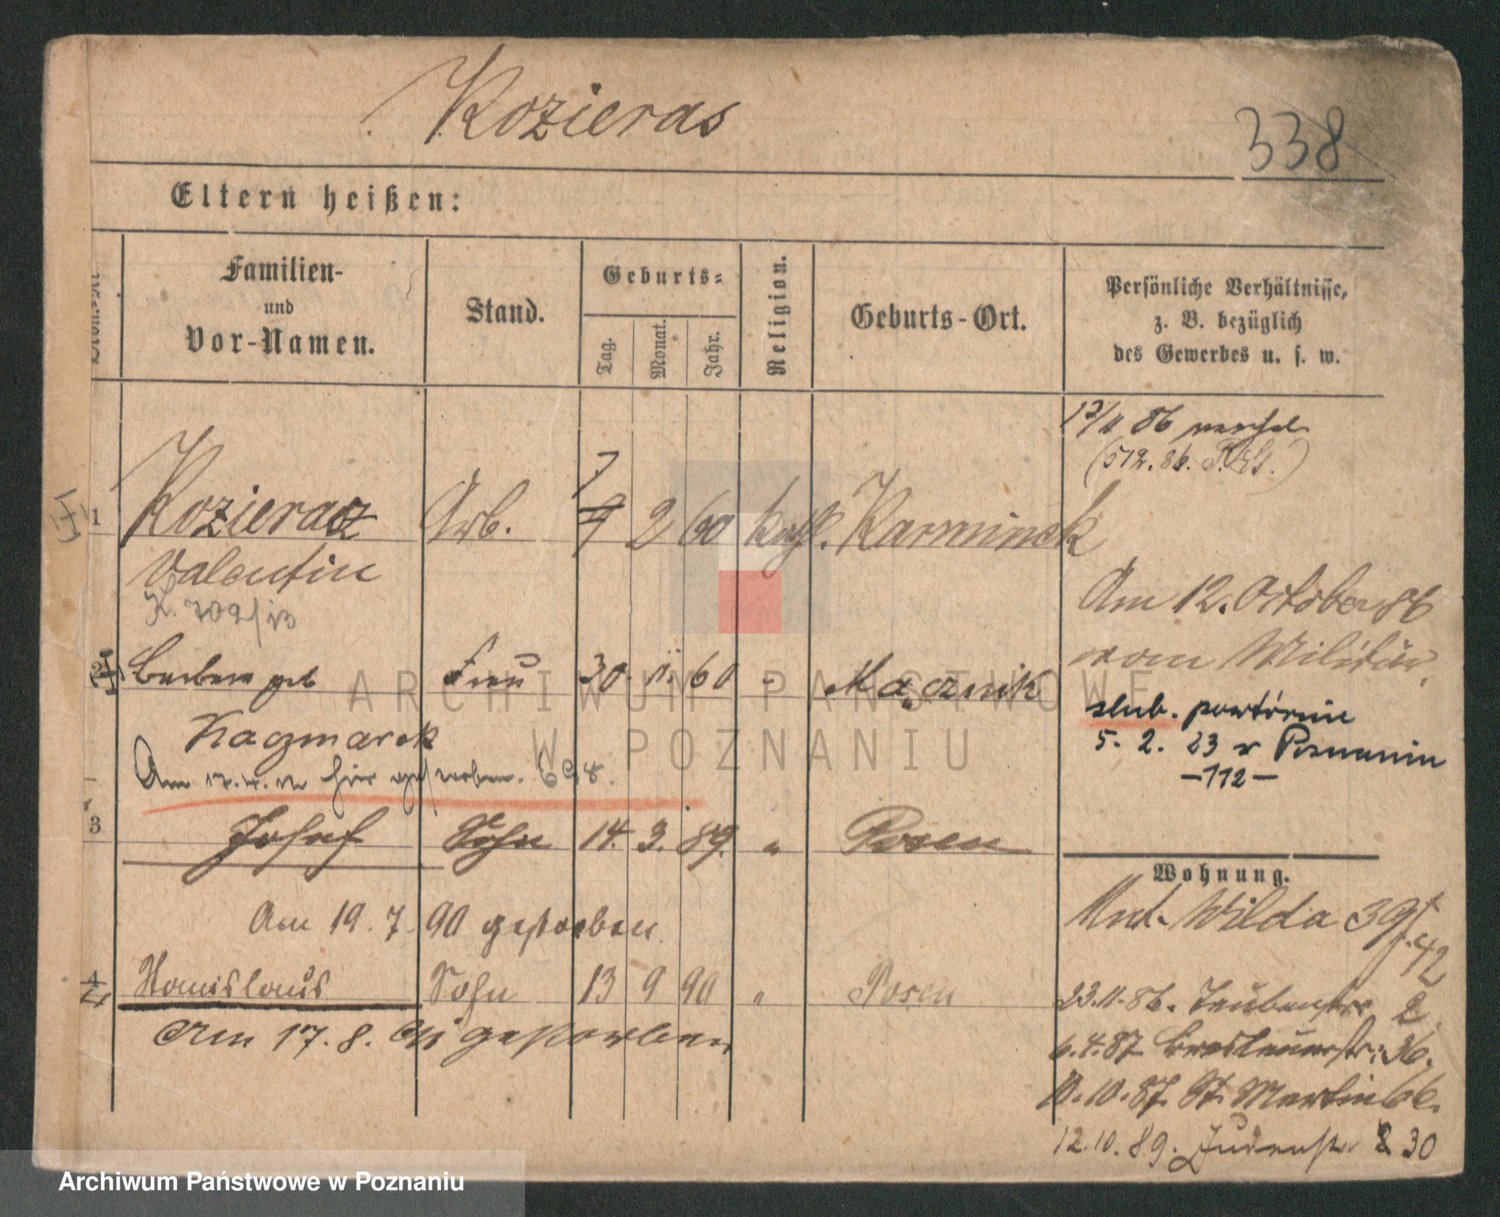 Kozieras
338
Eltern heißen:
Nummer
Familien-
und
Vor-Namen.
Stand.
Geburts-
Tag.
Monat.
Jahr.
Religion.
Geburts-Ort.
Persönliche Verhältnisse,
z. B. bezüglich
des Gewerbes u. s. w.
12/11 86
(512. 86.
1 Kozieras Arb. 7 2 60 kath. Karminek
Valentin
K. 709/
Am 12. October 86
vom Militär.
2 Barbara geb Frau 30. 11. 60 " Mącznik
Kaczmarek
ślub. powtórnie
5. 2. 23 w Poznaniu
-112-
Am hier gestorben. 698.
3 Josef Sohn 14. 3. 89. " Posen
Am 19. 7. 90 gestorben.
4 Stanislaus Sohn 13 9 90 " Posen
Am 17. 8. 91 gestorben
Wohnung.
Unt. Wilda 39
42
23.11.86. Taubenstr 2.
6.4.87 Breslauerstr. 36.
10.10.87. St. Martin 66.
12.10.89. Judenstr 30
ARCHIWUM PAŃSTWOWE
W POZNANIU
Archiwum Państwowe w Poznaniu